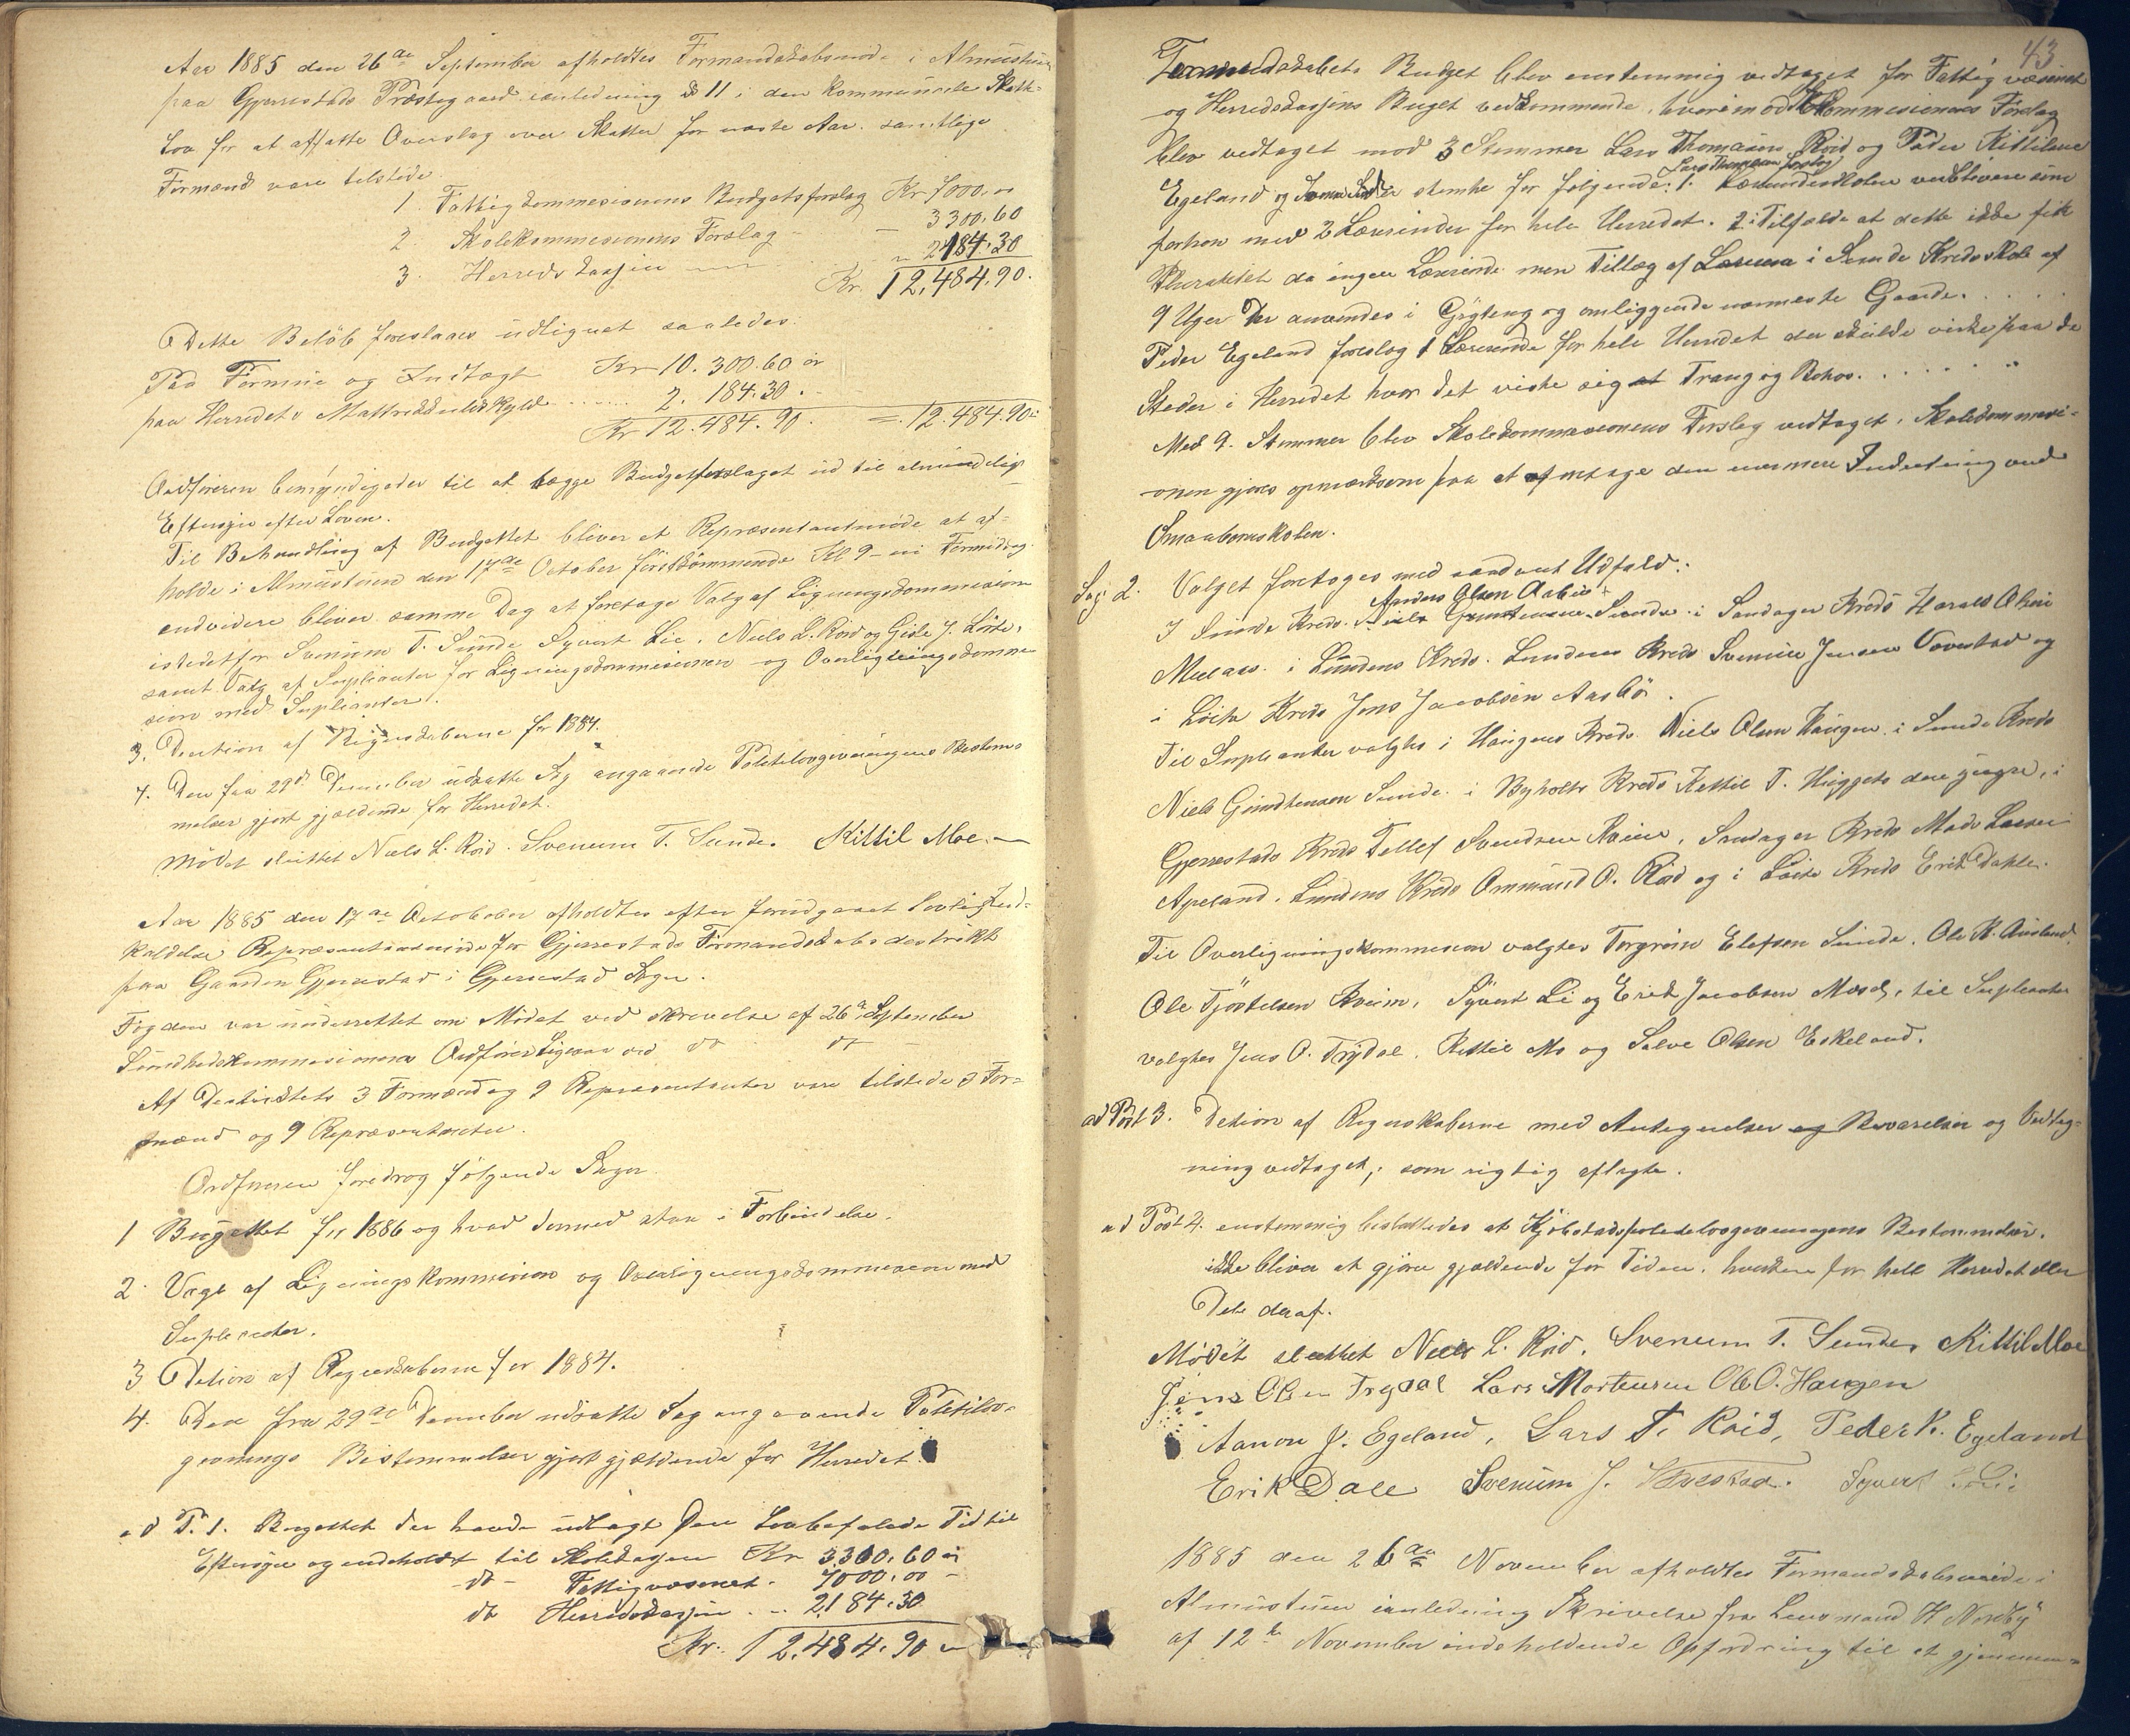 Aar 1885 den 26de September afholdtes Formandskabsmøde i Almustuen
paa Gjerrestads Præstegaard ianledning § 11 i den kommunale Skatte-
Lov for at affatte Overslag over Skatter for næste Aar. samtlige
Formænd vare tilstede.
1. Fattigkommesionens Budgetsforslag Kr 7000,00
2. Skolekommesionens Forslag — 3300,60
3. Herredskassen — " 2184.30
Kr. 12,484.90.
Dette Beløb foreslaaes udlignet saaledes:
Paa Formue og Indtægt Kr 10.300.60 ør
paa Herredets Mattrikkulskyld ...... 2.184.30.
Kr 12.484.90. = 12.484.90
Ordføreren bemyndigedes til at lægge Budgetforslaget ud til almindelig
Eftersyn efter Loven.
Til Behandling af Budgettet bliver et Repræsentantmøde at af-
holde i Almustuen den 17de October førstkommende Kl 9 Formiddag
endvidere bliver samme Dag at foretage Valg af Ligningskommesion
istedetfor Svenum T. Sunde Syvert Lie, Niels L. Røid og Gisle J. Løite,
samt Valg af Suplianter for Ligningskommesionen og Overligningskomme-
sion med Suplianter.
3. Decition af Regnskaberne for 1884.
4. Den fra 29de December udsatte Sag angaaende Politilovgivningens Bestem-
melser gjort gjældende for Herredet.
Mødet sluttet Niels L. Røid. Svenum T. Sunde. Kittil Moe.
Aar 1885 den 17de Octobober afholdtes efter forudgaaet lovlig Ind-
kaldelse Repræsentantmøde for Gjerrestads Formandskabsdestrikt
paa Gaarden Gjerrestad i Gjerrestad Sogn.
Fogden var underrettet om Mødet ved skrivelse af 26de September
Sundhedskommesionens Ordfører Ligesaa ved do do
Af Destriktets 3 Formænd og 9 Repræsentanter vare tilstede 3 For-
mænd og 9 Repræsentanter.
Ordføreren foredrog følgende Sager.
1 Bugettet for 1886 og hvad dermed staar i Forbindelse.
2. Valg af Ligningskommision og Overligningskommesion med
Suplianter.
3 Decition af Regnskaberne for 1884.
4. Den fra 29de December udsatte Sag angaaende Politilov-
givnings Bestemmelser gjort gjældende for Herredet
ad P. 1. Bugettet der havde udlagt den Lovbefalede Tid til
Eftersyn og indeholdt til Skolekassen Kr 3300,60 ør
do Fattigvæsenet. 7000,00
do Herredskassen. 2184.30
Kr. 12.484.90
43
Formandskabets Budget blev enstemmig vedtaget for Fattigvæsenet
og Herredskassens Buget vedkommende, hvorimod Skolekommesionens Forslag
blev vedtaget mod 3 Stemmer Lars Thomasen Røid og Peder Kittilsen
Lars Thomasen forslog
Egeland og stemte for følgende: 1. verblivere som
forhen med 2 Lærerinder for hele Herredet. 2. i Tilfælde at dette ikke fik
Pluralitet da ingen Lærerinde men Tillæg af i Sunde Kredsskole af
9 Uger der anvendes i og omliggende nærmeste Gaarde.
Peder Egeland foreslog 1 Lærerinde for hele Herredet der skulde virke paa de
Steder i Herredet hvor det viste sig at Trang og Behov.
Med 9. Stemmer blev Skolekommesionens Forslag vedtaget, Skolekommesi-
onen gjøres opmærksom paa at foretage den nærmere Inddeling ved
Smaabornskolen.
Sag 2. Valget foretoges med saadant Udfald:
Anders Olsen Aabø
I Sunde Kreds. Niels Gundtensen Sunde. i Sandager Kreds Harald Olsen
Melaas. i Lundens Kreds. Lundens Kreds Svenum Jensen Vævestad og
i Løite Kreds Jens Jacobsen Aasbø.
Til Suplianter valgtes i Haugens Kreds Niels Olsen Haugen. i Sunde Kreds
Niels Gundtensen Sunde. i Byholts Kreds Kettil T. den yngre, i
Gjerrestads Kreds Tellef Svendsen Kveim, Sandager Kreds Mads Larsen
Apeland. Lundens Kreds Ommund O. Røid og i Løite Kreds Erik Dahle.
Til Overligningskommesion valgtes Torgrim Elefsen Sunde. Ole K. Ausland,
Ole Tjøstelsen Kveim, Syvert Li og Erik Jacobsen Moe, til Suplianter
valgtes Jens O. Trydal, Kettil Mo og Salve Olsen Eskeland.
ad Post 3. Detion af Regnskaberne med Antegnelser og Besvarelser og Vedteg-
ning vedtaget, som rigtig aflagte.
ad Post 4. enstemmig besluttedes at Kjøbstadspolitilovgivningens Bestemmelser.
ikke bliver at gjøre gjældende for Tiden. hverken for hele Herredet eller
Dele deraf.
Mødet sluttet Niels L. Røid. Svenum T. Sunde, Kittil Moe
Jens Olsen Trydal Lars Mortensen Ole O. Haugen
Aanon J. Egeland, Lars T. Røid, Peder K. Egeland
Erik Dale Svenum J. Vævestad. Syvert Li
1885 den 26de November afholdtes Formandskabsmøde i
Almustuen ianledning Skrivelse fra Lensmand H Nordby
af 12te November indeholdende Opfordring til at gjennem-